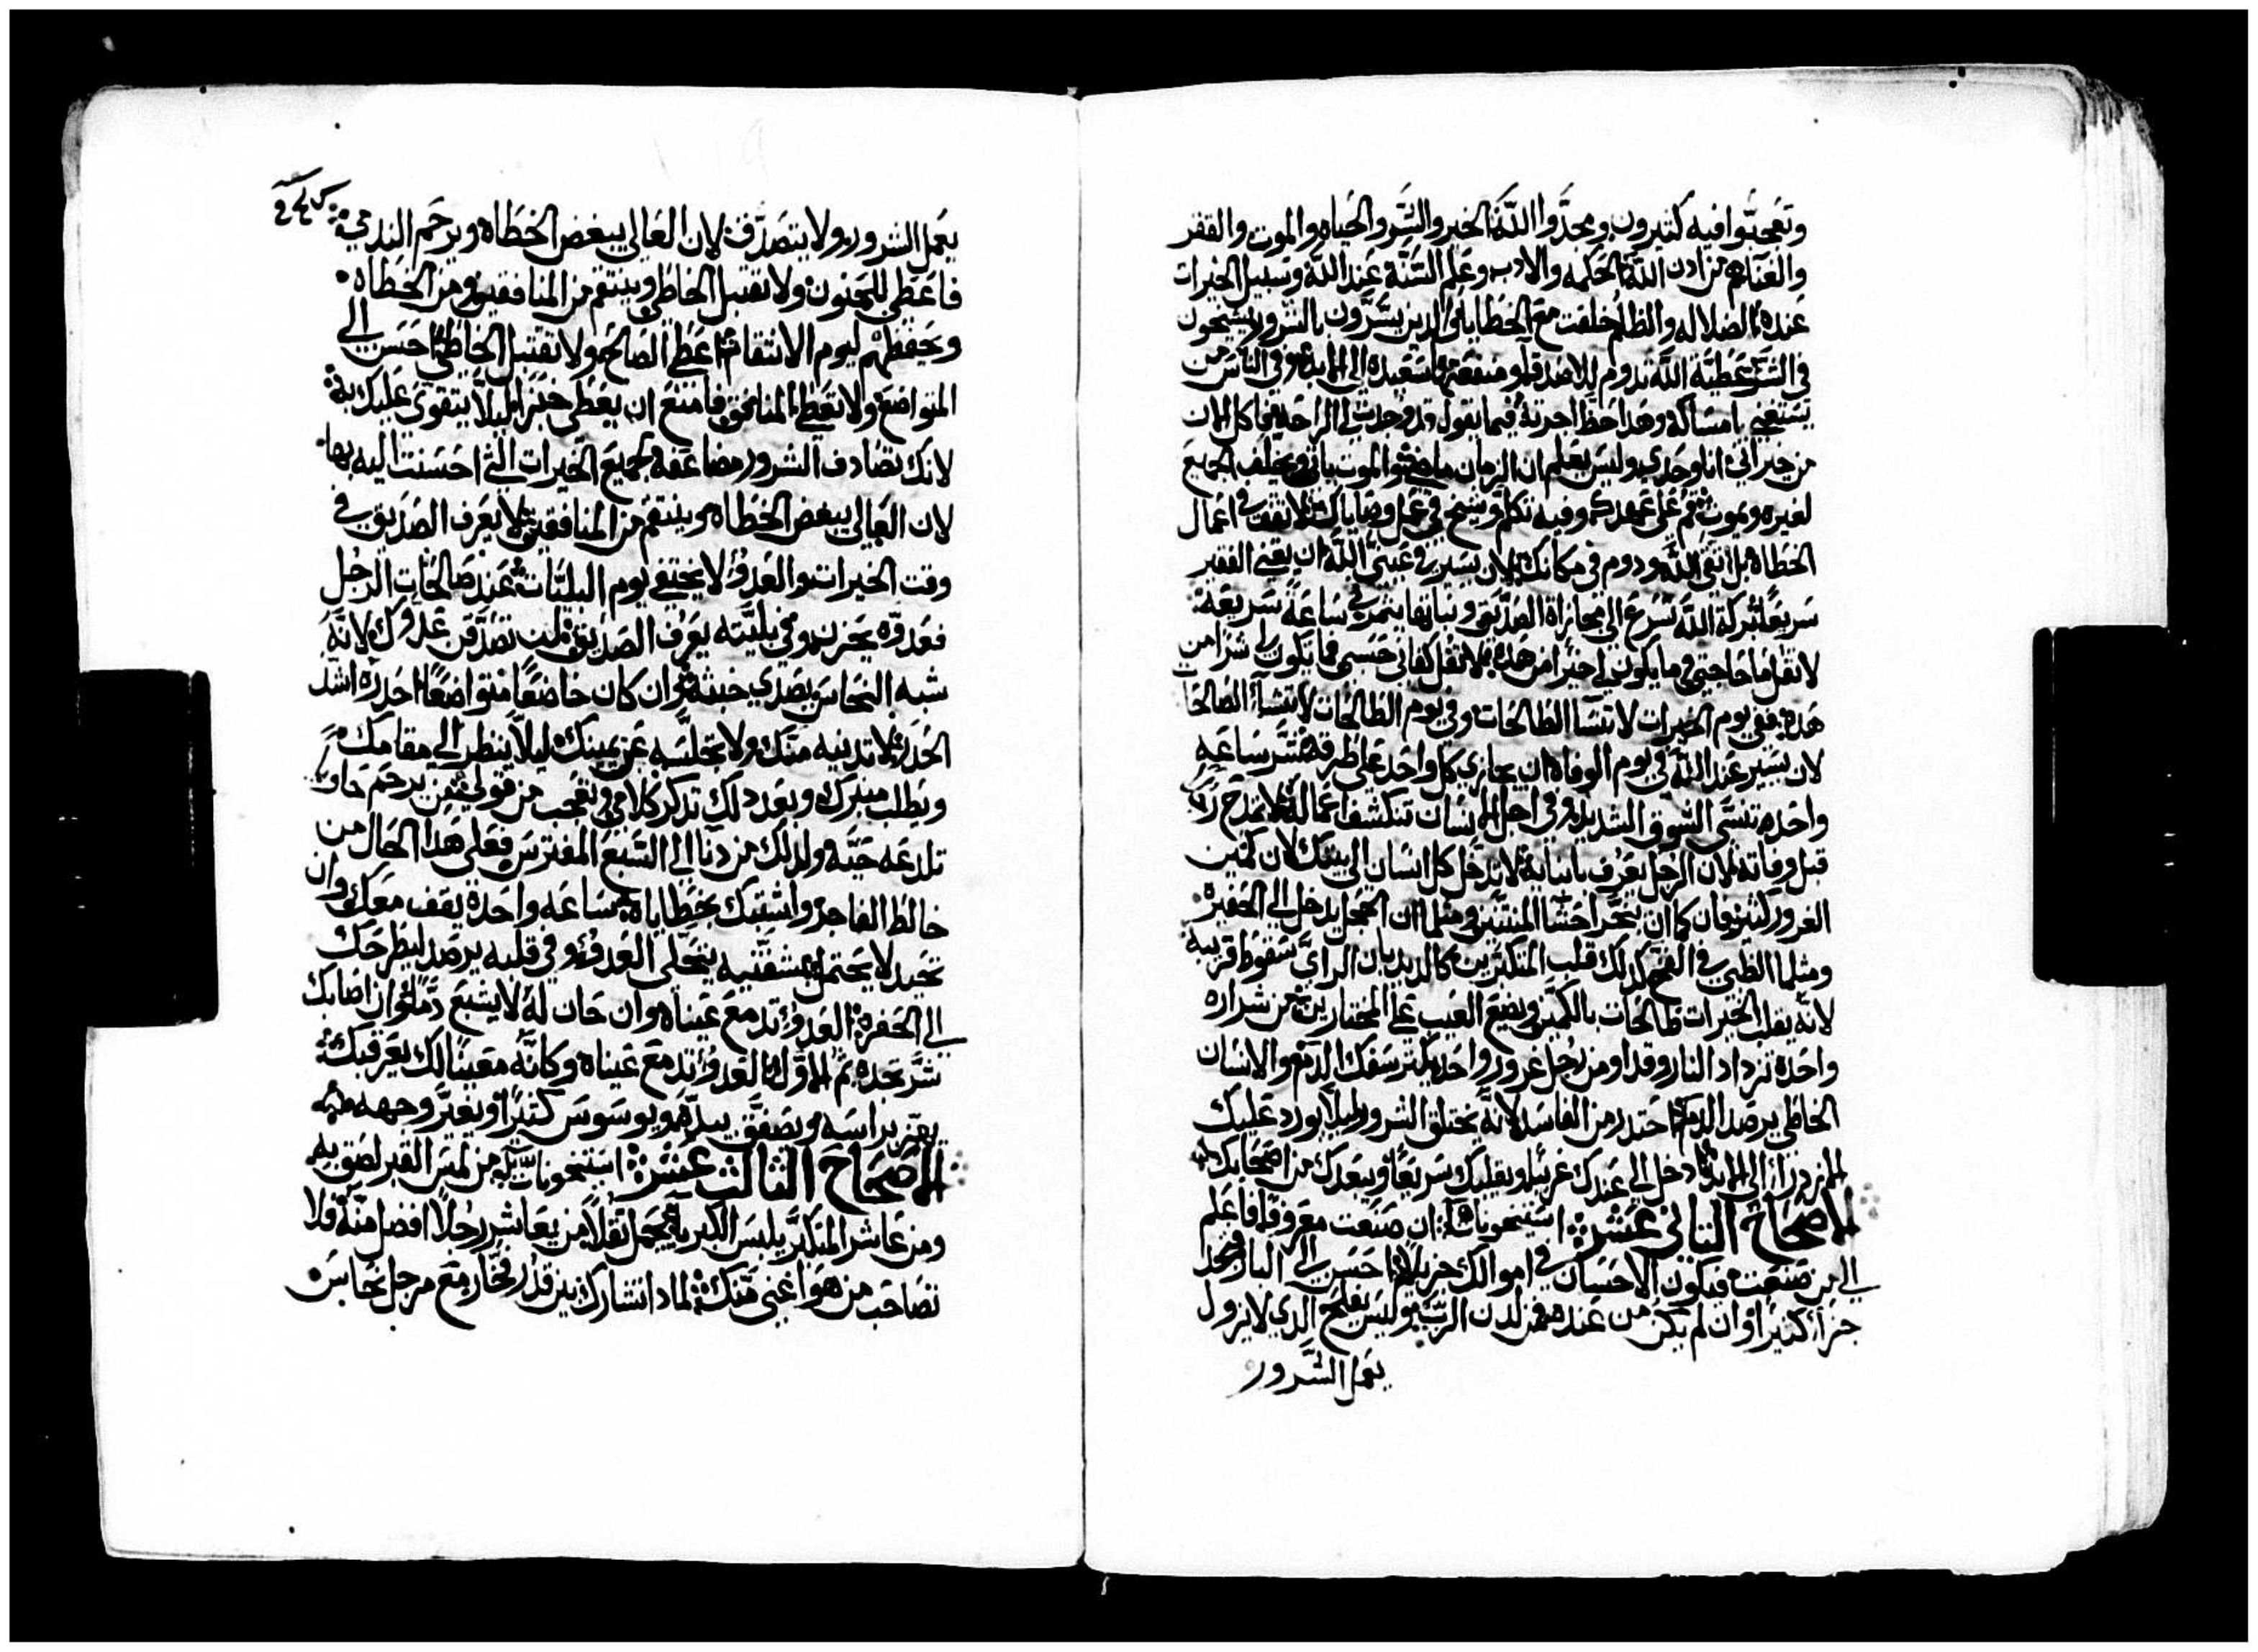 وتعجبوا فيه كثيرون ومجدوا الله الخير والشر والحياه والموت والفقر
والغناهم من لدن الله الحكمه والادب وعلم السنة عند الله وسبيل الخيرات
عنده الضلاله والظلم خلقت مع الخطاه والدين يسرون بالشرور يشيخون
في الشر عطية الله تدوم للاصدقا ومنفعتها سعيده الى الابد وفي الناس من
يستغني بامساكه وهدا حظ اجرته فيما يقول قد وجدت لي الراحه فاكل الان
من خيراتي انا وحدي وليس يعلم ان الزمان ماضي والموت ياتي ويخلف الجميع
لغيره ويموت قم على عهدك وفيه تكلم وشيخ في عمل وصاياك لا تقف في اعمال
الخطاه بل اتقي الله ودوم في مكانك لان يسير في عيني الله ان يغني الفقير
سريعا بركة الله تسرع الى مجازاة الصديق ونباتها يثمر في ساعة سريعه
لا تقل ما حاجتي وما يكون لي خيرا من هده لا تقل كفاني حسبي فما يكون لي شرا من
هده ففي يوم الخيرات لا تنسا الطالحات وفي يوم الطالحات لا تنسا الصالحات
لان يسير عند الله في يوم الوفاه ان يجازي كل واحد على طرقه شر ساعه
واحده تنسي الشوق الشديد وفي اجل الانسان تنكشف اعماله لا تمدح رجلا
قبل وفاته لان الرجل يعرف بابنايه لا تدخل كل انسان الى بيتك لان كمين
الغرور كثير فان كما ان بخر احشا المنتنين ومثلما ان الحجل يدخل الى الحفيره
ومثلما الظبي في الفخ كدلك قلب المتكبرين كالديدبان الراي سقوط قريبه
لانه يقلب الخيرات طالحات بالكمين ويضع العيب على المختارين من شراره
واحدة تزداد النار وقدا ومن رجل غرور واحد يكثر سفك الدم والانسان
الخاطي يرصد الدم احتدر من الفاسد لانه يختلق الشرور ليلا يورد عليك
الازدراء الى الابد ادخل الى عندك غريبا ويقلبك سريعا ويبعدك من اصحابك
الاصحاح الثاني عشر استيخوناته ان صنعت معروفا فاعلم
الى من صنعت فيكون الاحسان في اموالك جزيلا احسن الى البار وتجد
جزا كثيرا وان لم يكن من عنده فمن لدن الرب وليس يفلح الدي لا يزول
يعمل الشرور
يعمل الشرور ولا يتصدق لان العالي يبغض الخطاه ويرحم الندمي
فاعطي للتحنون ولا تقتبل الخاطي وينتقم من المنافقين ومن الخطاه
ويحفظهم ليوم الانتقام اعطي الصالح ولا تقتبل الخاطي احسن الى
المتواضع ولا تعطي المنافق فامنع ان يعطى خبزا ليلا يتقوى عليك به
لانك تصادف الشرور مضاعفه بجميع الخيرات التي احسنت اليه بها
لان العالي يبغض الخطاه وينتقم من المنافقين لا يعرف الصديق في
وقت الخيرات والعدو لا يختفي يوم البليات عند صالحات الرجل
فعدوه يحزن وفي بليته يعرف الصديق لا تصدق عدوك لانه
شبه النحاس يصدي خبثه وان كان خاضعا متواضعا احدره اشد
الحدر لا تدنيه منك ولا تجلسه عن يمينك ليلا ينظر الى مقامك
ويطلب منبرك وبعد دلك تدكر كلامي وتعجب من قولي من يرحم حاوي
تلدغه حية ولدلك من دنا الى السبع المفترس فعلى هدا الحال من
خالط الفاجر واشتبك بخطاياه ساعه واحدة يقف معك وان
تحيد لا يحتمل بشفتيه يتحلى العدو وفي قلبه يرصد ليطرحك
الى الحفرة العدو تدمع عيناه وان حان له لا يشبع دما وان اصابك
شر تجده ثم الاول العدو تدمع عيناه وكانه معينا لك يعرقبك
يهز براسه ويصفق بيديه ويوسوس كثيرا ويغير وجهه
الاصحاح الثالث عشر استيخوناته من لمس القير لصق به
ومن عاشر المتكبر يلبس الكبريا يحمل ثقلا من يعاشر رجلا افضل منه فلا
تصاحب من هو اغنى منك لمادا تشارك بين قدر فخار مع مرجل نحاس